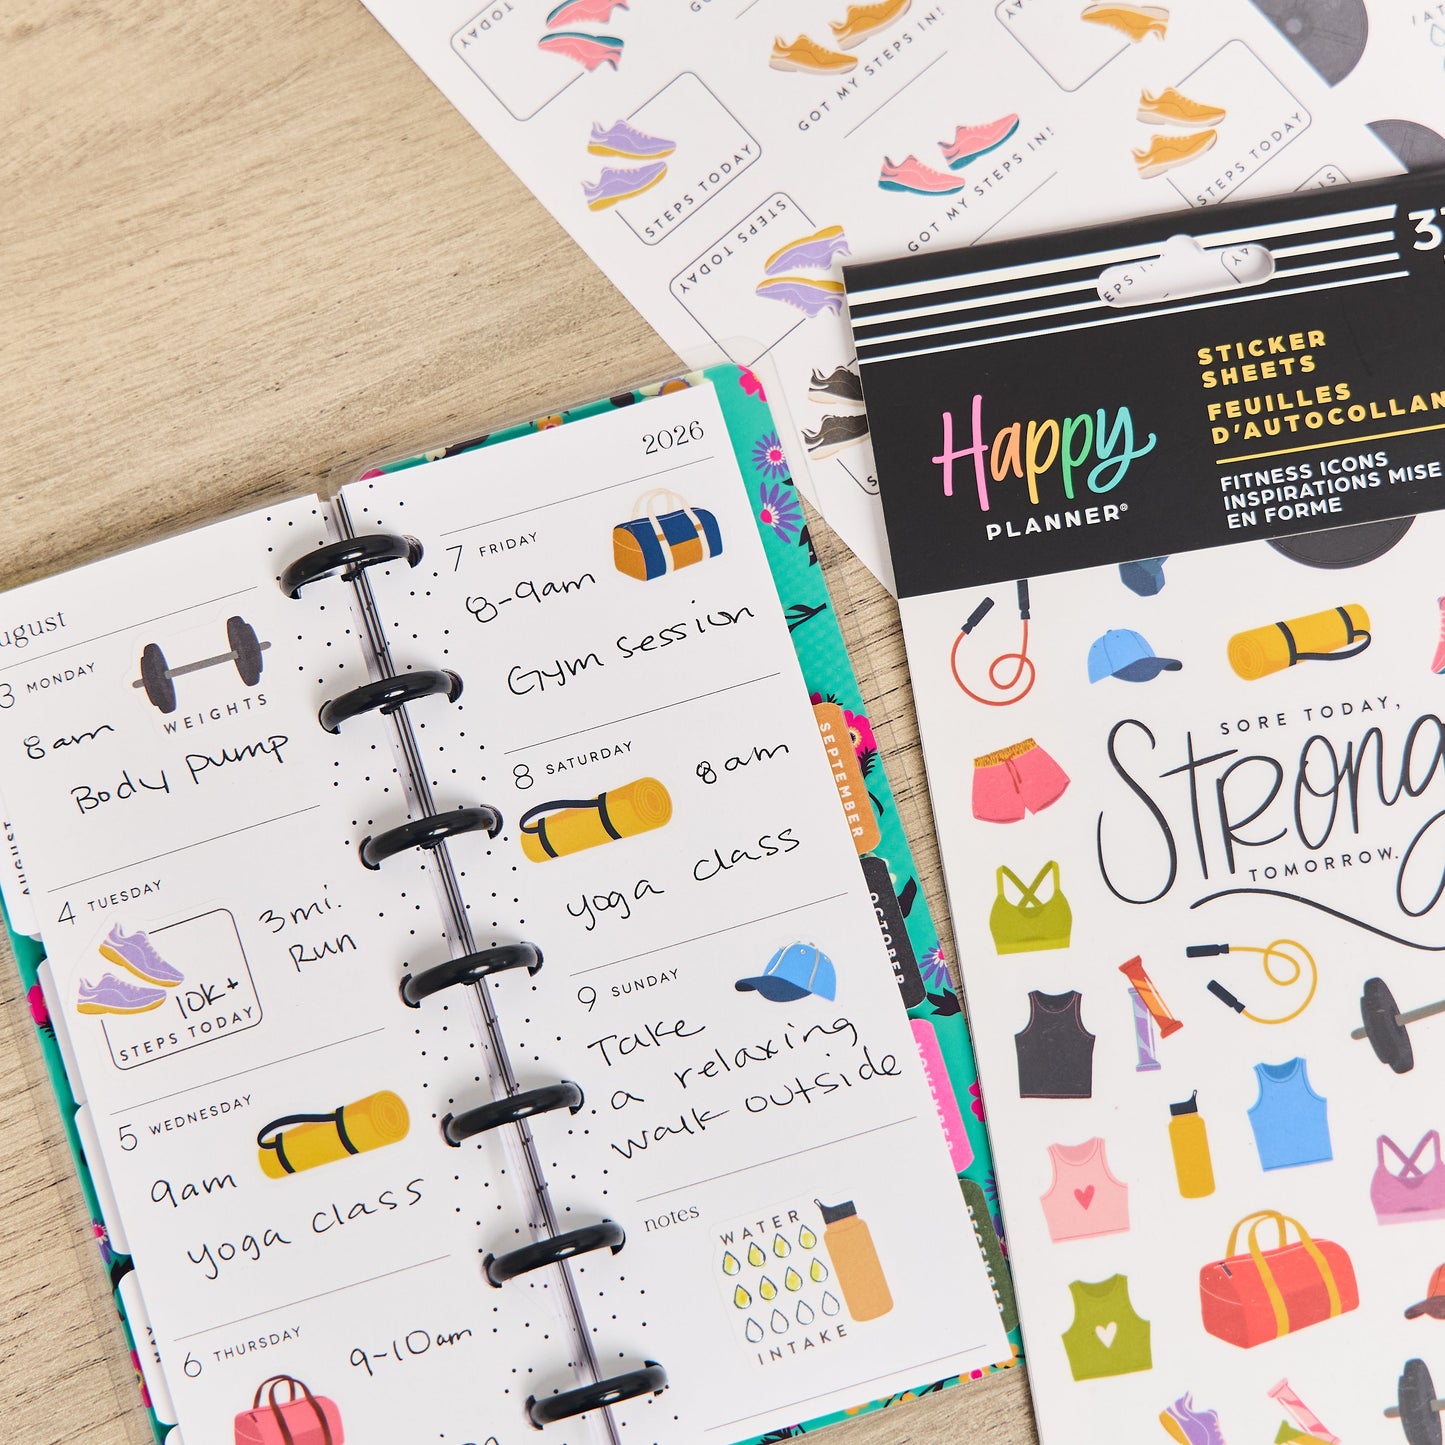 TODAY
GOT MY STEPS IN!
STEPS TODAY
GOT MY STEPS IN!
STEPS TODAY
STEPS TODAY
EPS IN
AY
Happy
PLANNER®
STICKER
SHEETS
FEUILLES
D'AUTOCOLLAN
FITNESS ICONS
INSPIRATIONS MISE
EN FORME
SORE TODAY,
Strong
TOMORROW.
ugust
3 MONDAY
8am
WEIGHTS
Body pump
AUGUST
4 TUESDAY
3 mi.
Run
10K+
STEPS TODAY
5 WEDNESDAY
9am
yoga class
6 THURSDAY
9-10am
2026
7 FRIDAY
8-9am
Gym session
8 SATURDAY
8am
yoga class
9 SUNDAY
Take
a relaxing
walk outside
notes
WATER
INTAKE
SEPTEMBER
OCTOBER
NOVEMBER
DECEMBER